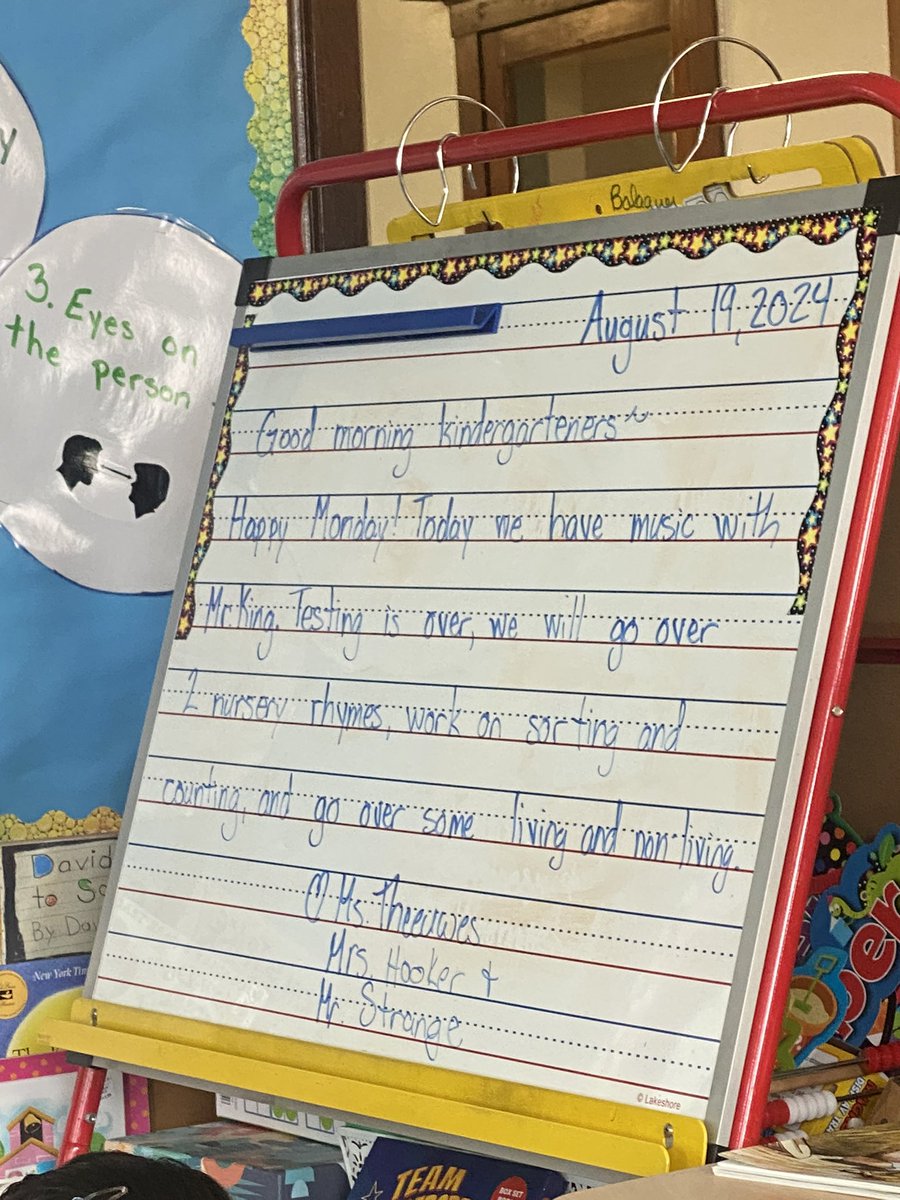 3. Eyes on
the person
August 19, 2024
Good morning kindergarteners~
Happy Monday! Today we have music with
Mr. King. Testing is over, we will go over
2 nursery rhymes, work on sorting and
counting, and go over some living and non living.
♡ Ms. Theeuwes
Mrs. Hooker +
Mr. Strange
© Lakeshore
David
to
By Dav
New York Tim
TEAM
BOX SET